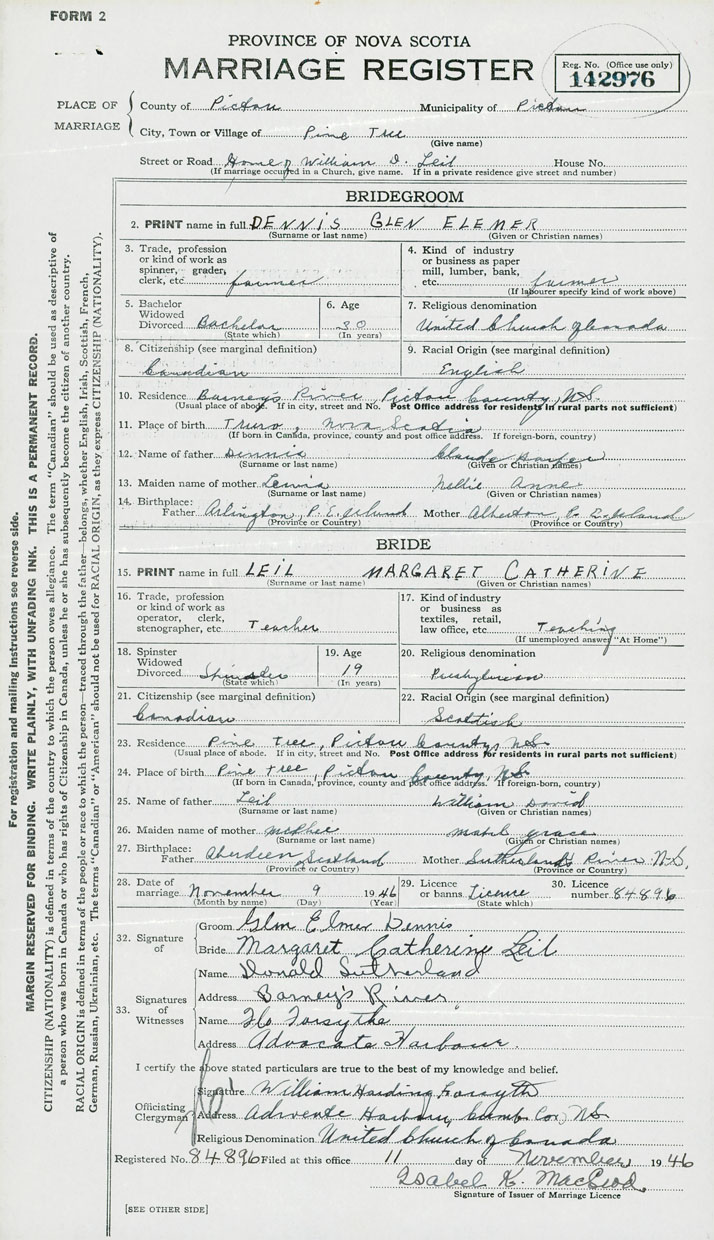 FORM 2
PROVINCE OF NOVA SCOTIA
MARRIAGE REGISTER
Reg. No. (Office use only)
142976
PLACE OF MARRIAGE
County of Pictou Municipality of Pictou
City, Town or Village of Pine Tree
(Give name)
Street or Road Home of William D. Leil House No.
(If marriage occurred in a Church, give name. If in a private residence give street and number)
BRIDEGROOM
2. PRINT name in full DENNIS GLEN ELEMER
(Surname or last name) (Given or Christian names)
3. Trade, profession or kind of work as spinner, grader, clerk, etc. farmer
4. Kind of industry or business as paper mill, lumber, bank, etc. farmer
(If labourer specify kind of work above)
5. Bachelor Widowed Divorced Bachelor
(State which)
6. Age 30
(In years)
7. Religious denomination
United Church of Canada
8. Citizenship (see marginal definition)
Canadian
9. Racial Origin (see marginal definition)
English
10. Residence Barney's River, Pictou County, N.S.
(Usual place of abode. If in city, street and No. Post Office address for residents in rural parts not sufficient)
11. Place of birth Truro, Nova Scotia
(If born in Canada, province, county and post office address. If foreign-born, country)
12. Name of father Dennis Claude Harper
(Surname or last name) (Given or Christian names)
13. Maiden name of mother Lewis Nellie Anne
(Surname or last name) (Given or Christian names)
14. Birthplace: Father Arlington, P.E. Island Mother Alberton P.E. Island
(Province or Country) (Province or Country)
BRIDE
15. PRINT name in full LEIL MARGARET CATHERINE
(Surname or last name) (Given or Christian names)
16. Trade, profession or kind of work as operator, clerk, stenographer, etc. Teacher
17. Kind of industry or business as textiles, retail, law office, etc. Teaching
(If unemployed answer "At Home")
18. Spinster Widowed Divorced Spinster
(State which)
19. Age 19
(In years)
20. Religious denomination
Presbyterian
21. Citizenship (see marginal definition)
Canadian
22. Racial Origin (see marginal definition)
Scottish
23. Residence Pine Tree, Pictou County, N.S.
(Usual place of abode. If in city, street and No. Post Office address for residents in rural parts not sufficient)
24. Place of birth Pine Tree, Pictou County, N.S.
(If born in Canada, province, county and post office address. If foreign-born, country)
25. Name of father Leil William David
(Surname or last name) (Given or Christian names)
26. Maiden name of mother McPhee Mabel Grace
(Surname or last name) (Given or Christian names)
27. Birthplace: Father Aberdeen, Scotland Mother Sutherlands River N.S.
(Province or Country) (Province or Country)
28. Date of marriage November 9 1946
(Month by name) (Day) (Year)
29. Licence or banns License
(State which)
30. Licence number 84896
32. Signature of
Groom Glen Elmer Dennis
Bride Margaret Catherine Leil
33. Signatures of Witnesses
Name Donald Sutherland
Address Barney's River,
Name Flo Forsythe
Address Advocate Harbour.
I certify the above stated particulars are true to the best of my knowledge and belief.
Officiating Clergyman
Signature William Harding Forsyth
Address Advocate Harbour, Cumb. Co., N.S.
Religious Denomination United Church of Canada
Registered No. 84896 Filed at this office 11 day of November 1946
Isabel K. MacLeod
Signature of Issuer of Marriage Licence
[SEE OTHER SIDE]
For registration and mailing instructions see reverse side.
MARGIN RESERVED FOR BINDING. WRITE PLAINLY, WITH UNFADING INK. THIS IS A PERMANENT RECORD.
CITIZENSHIP (NATIONALITY) is defined in terms of the country to which the person owes allegiance. The term "Canadian" should be used as descriptive of
a person who was born in Canada or who has rights of Citizenship in Canada, unless he or she has subsequently become the citizen of another country.
RACIAL ORIGIN is defined in terms of the people or race to which the person—traced through the father—belongs, whether English, Irish, Scottish, French,
German, Russian, Ukrainian, etc. The terms "Canadian" or "American" should not be used for RACIAL ORIGIN, as they express CITIZENSHIP (NATIONALITY).